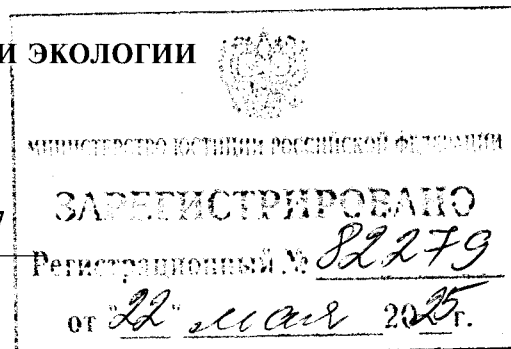 И ЭКОЛОГИИ
МИНИСТЕРСТВО ЮСТИЦИИ РОССИЙСКОЙ ФЕДЕРАЦИИ
ЗАРЕГИСТРИРОВАНО
Регистрационный № 82279
от "22" мая 2025 г.